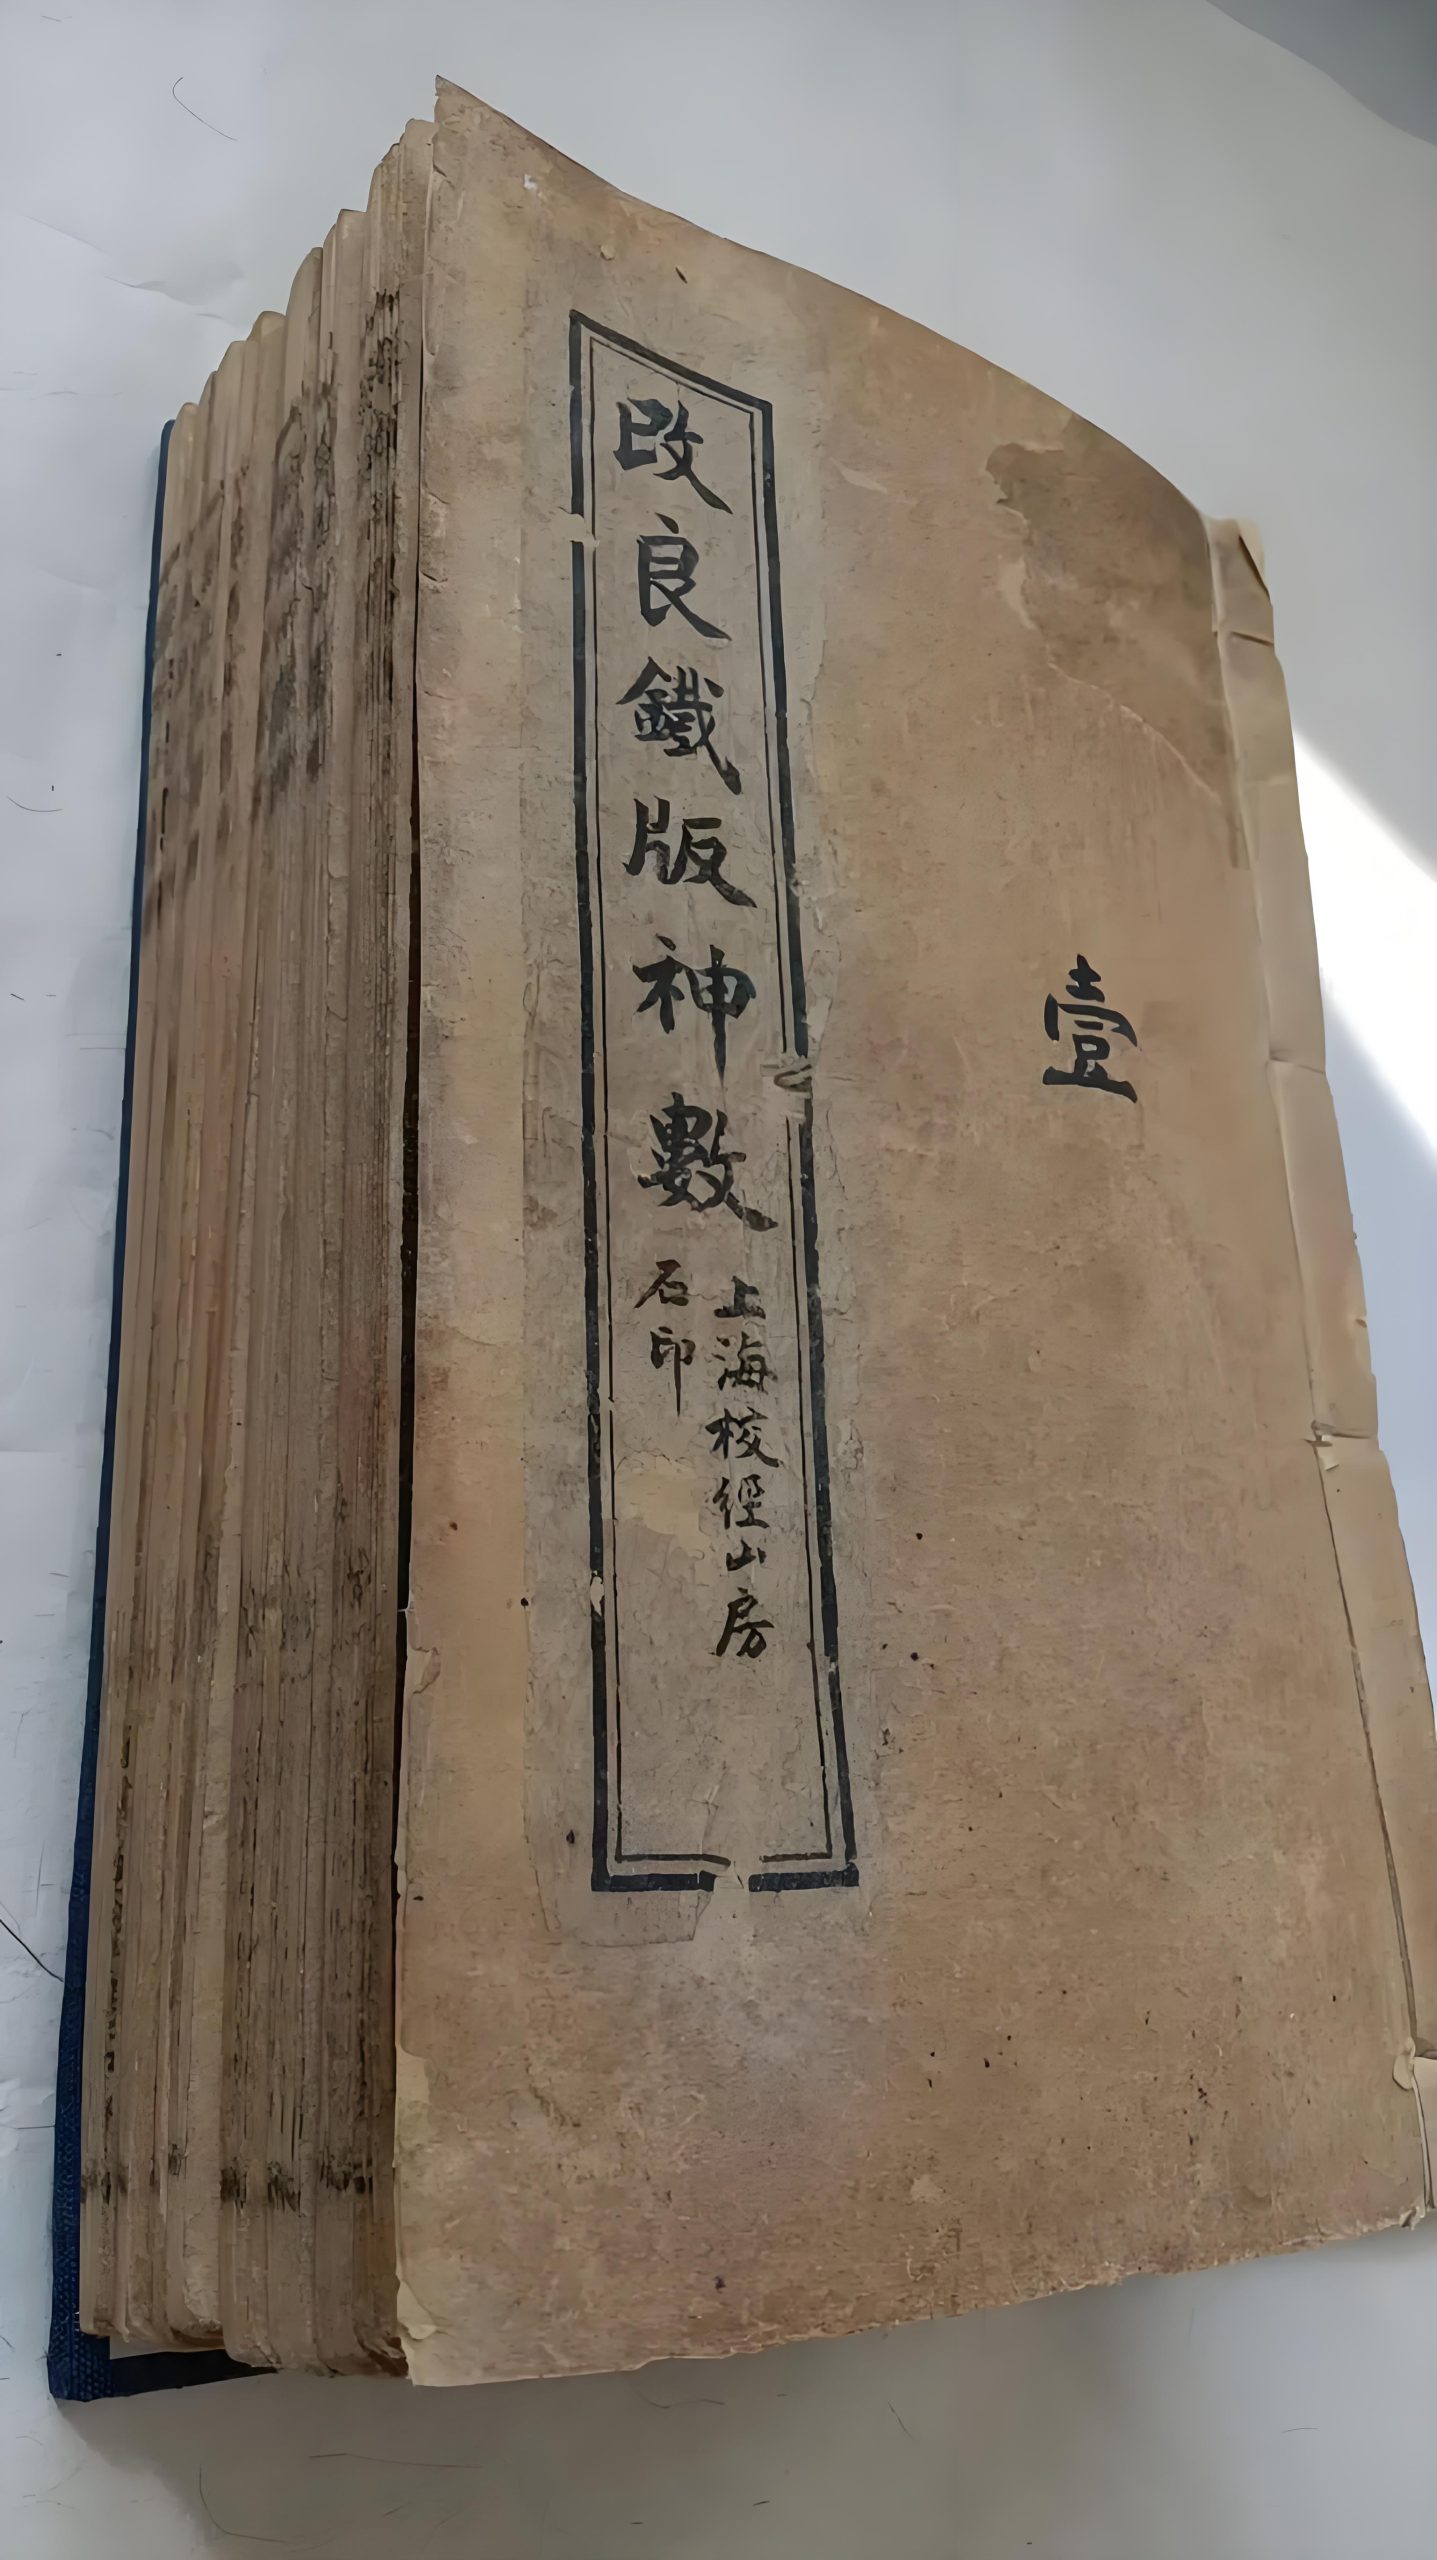 壹
改良鐵版神數
上海校經山房
石印